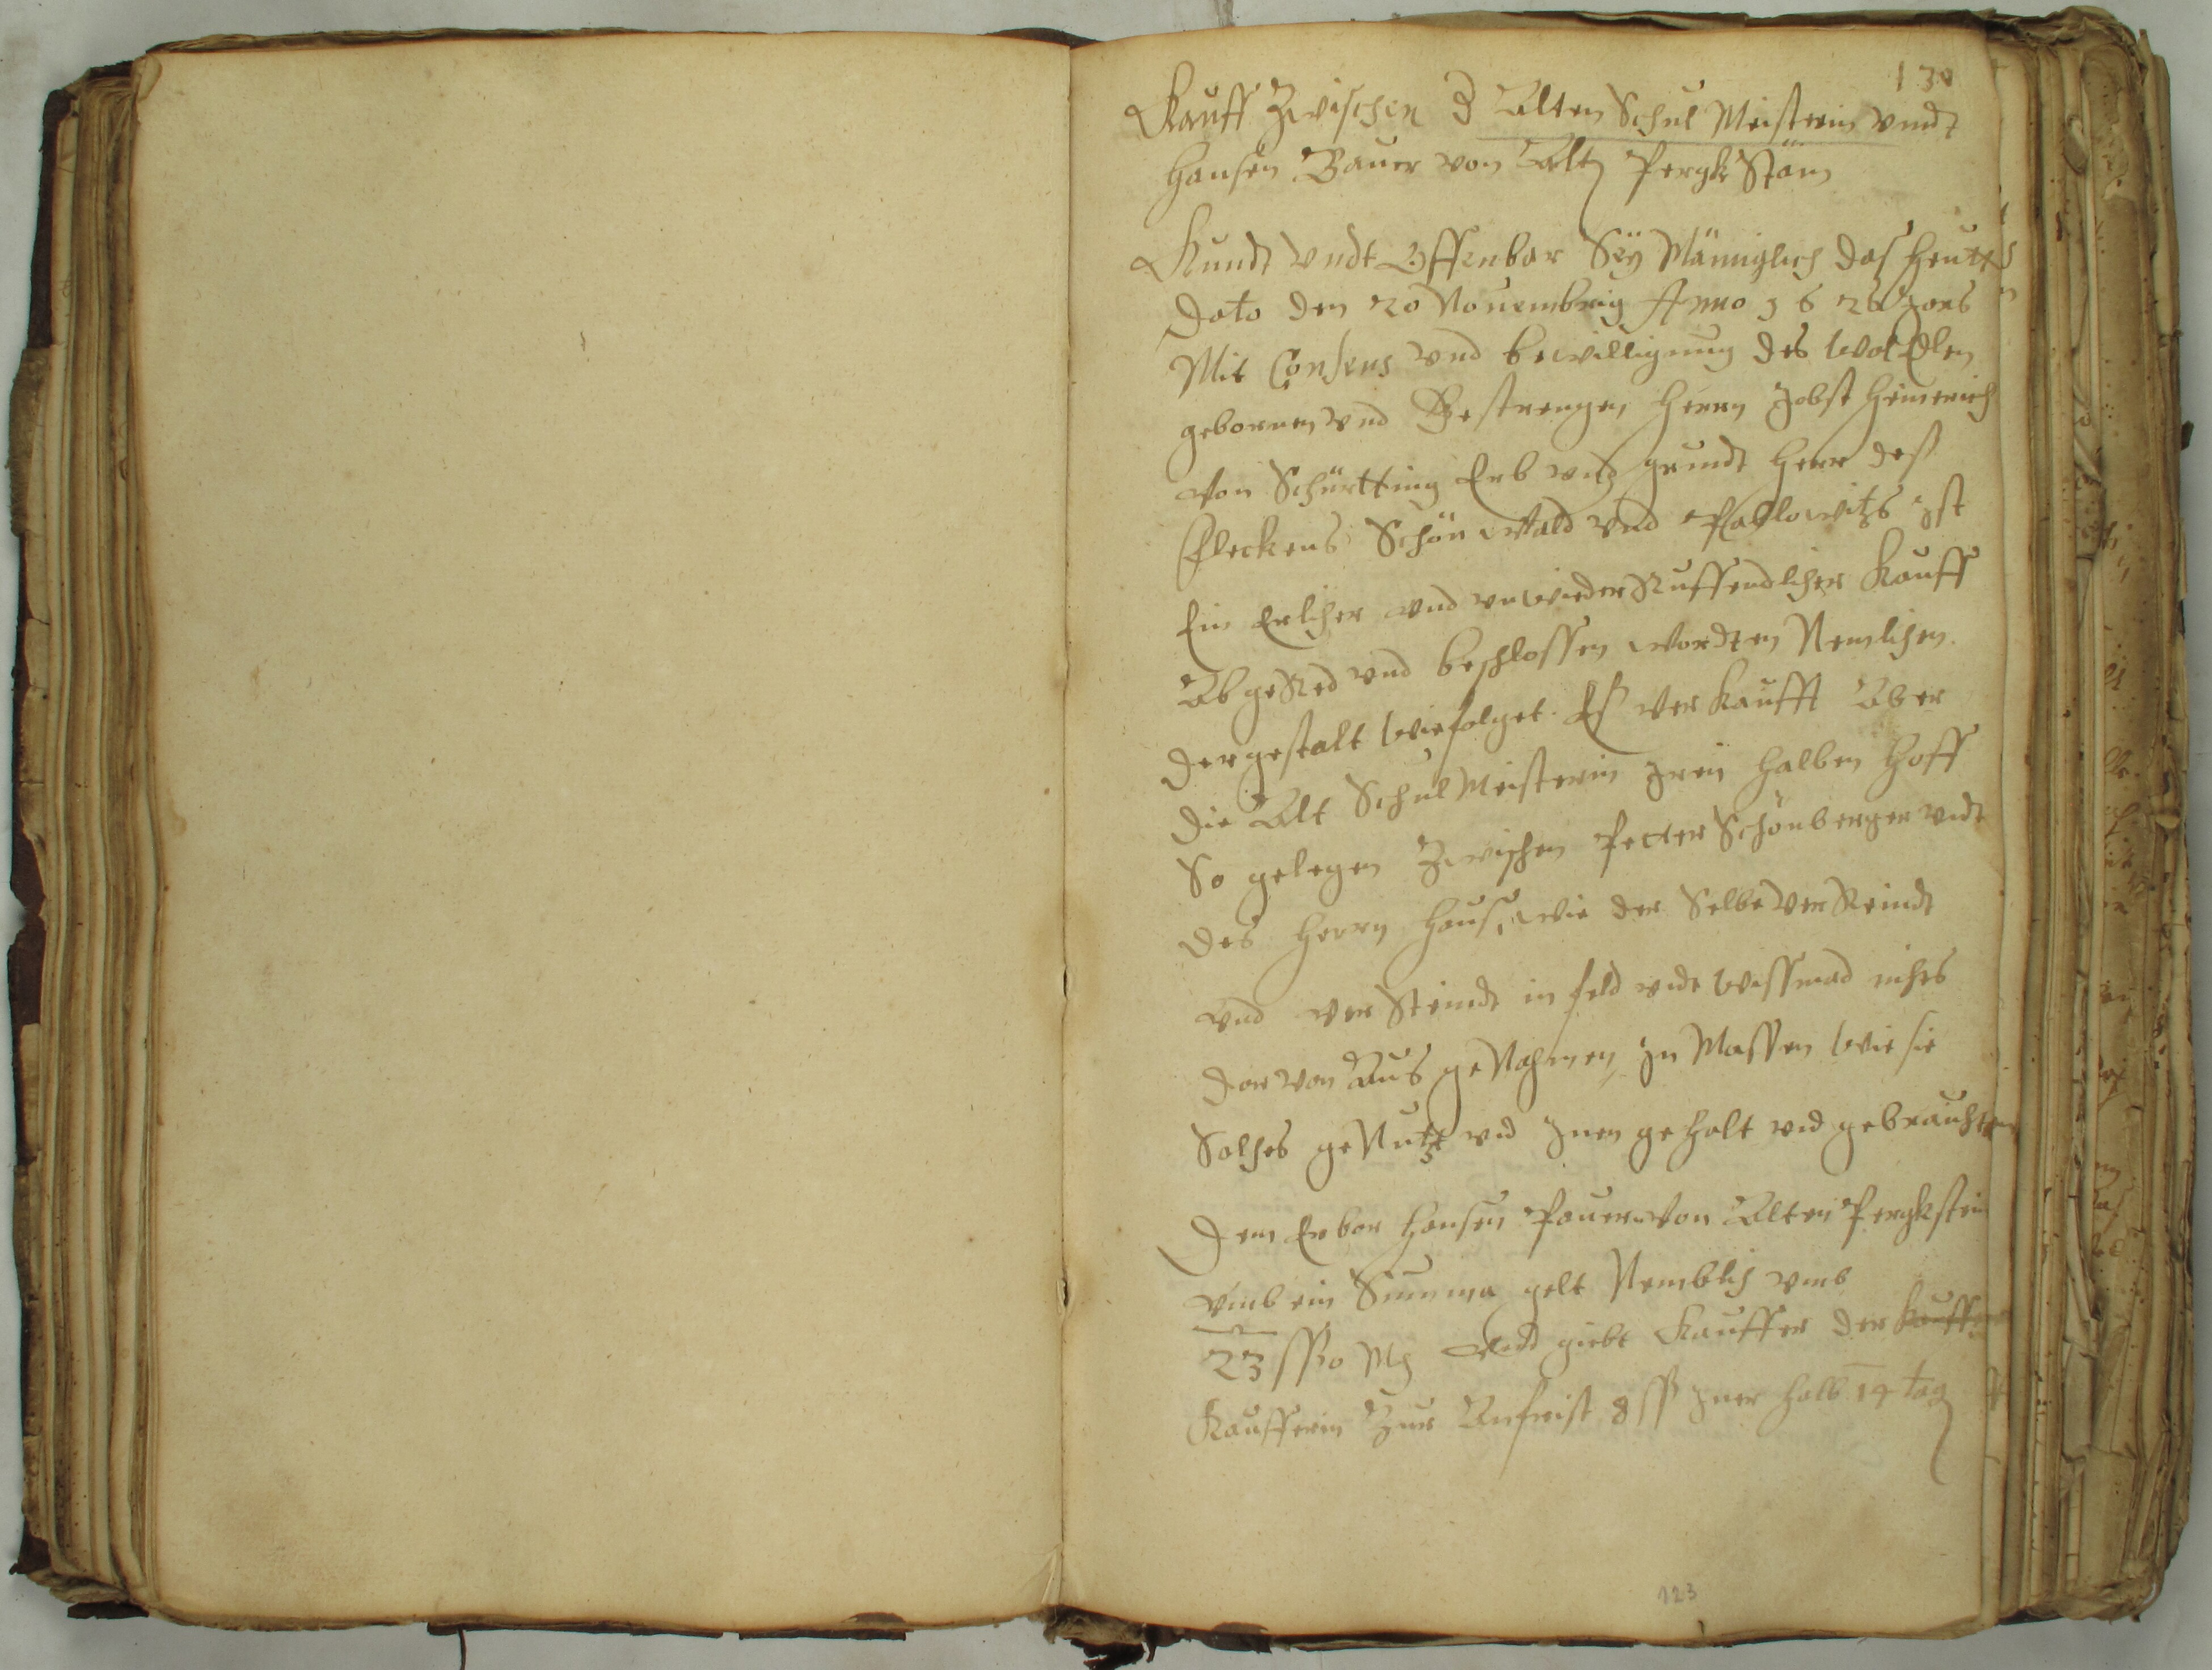 130
Kauff Zwischen d Alten Schul Meisterin vndt
Hansen Bauer von Alt Pergk Stäin
Kundt vndt Offenbar Sey Männiglich das heutt
Dato den 20 Nouembrig Anno 1626 Jors
Mit Consens vnd bewilligung des WolEdlen
gebornen vnd Gestrengen Herrn Jobst Heinerich
von Schürtting Erb vnd grundt Herr deß
Fleckens Schön Wald vnd Pahlowitzs Ist
Ein Erlicher vnd vnwiederRuffendlicher Kauff
Ab geRed vnd beschlossen wordten Nemlichen.
dergestalt wie folget. Es Ver Kaufft Aber
die Alt Schul Meisterin Iren halben Hoff
So gelegen Zwischen Petter Schönberger vndt
des Herrn Haus, wie der Selbe Ver Reindt
vnd ver Steindt in feld vndt wissmad nichts
dar von Aus geNohmen, In Massen wie sie
Solches geNutzt vnd Inen gehalt vnd gebrauchten
Dem Erbar Hansen Pauer von Alten Pergkstein
vmb ein Summa gelt Nemblich vmb
23 ßo M Vnd giebt Kauffer der Kauffer
Kaufferin Zur Anfrist 8 ß Iner halb 14 tag
123